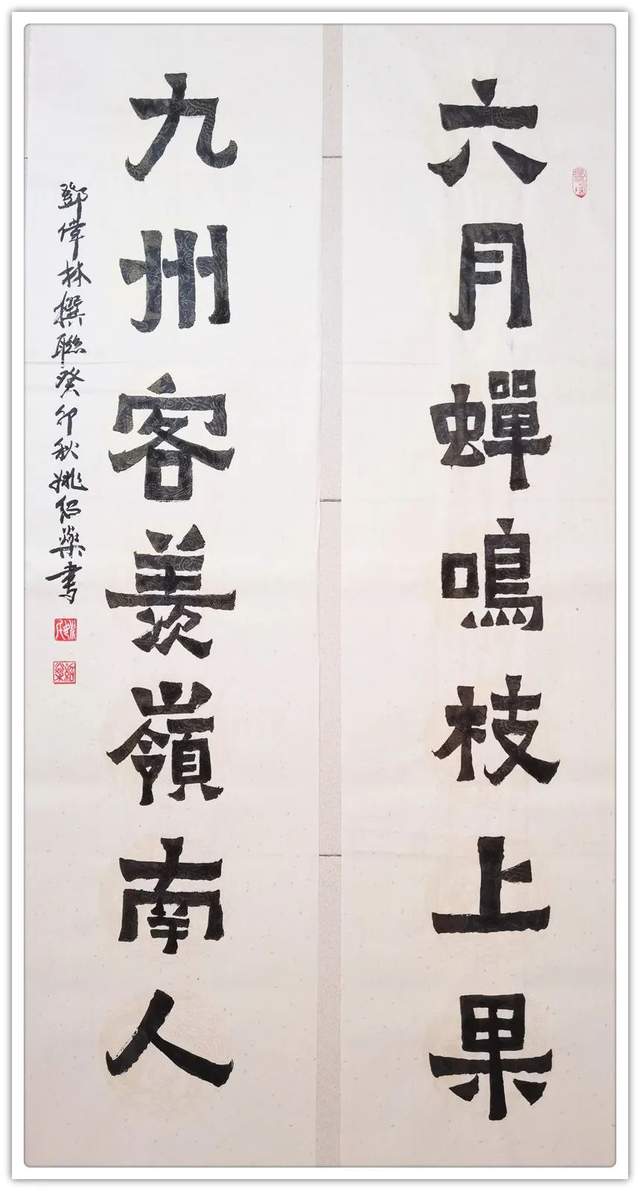 六月蟬鳴枝上果
九州客羨嶺南人
鄧偉林撰聯癸卯秋姚紹燊書